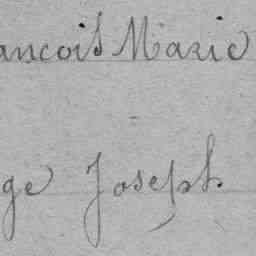 ancois Marie
ge Joseph